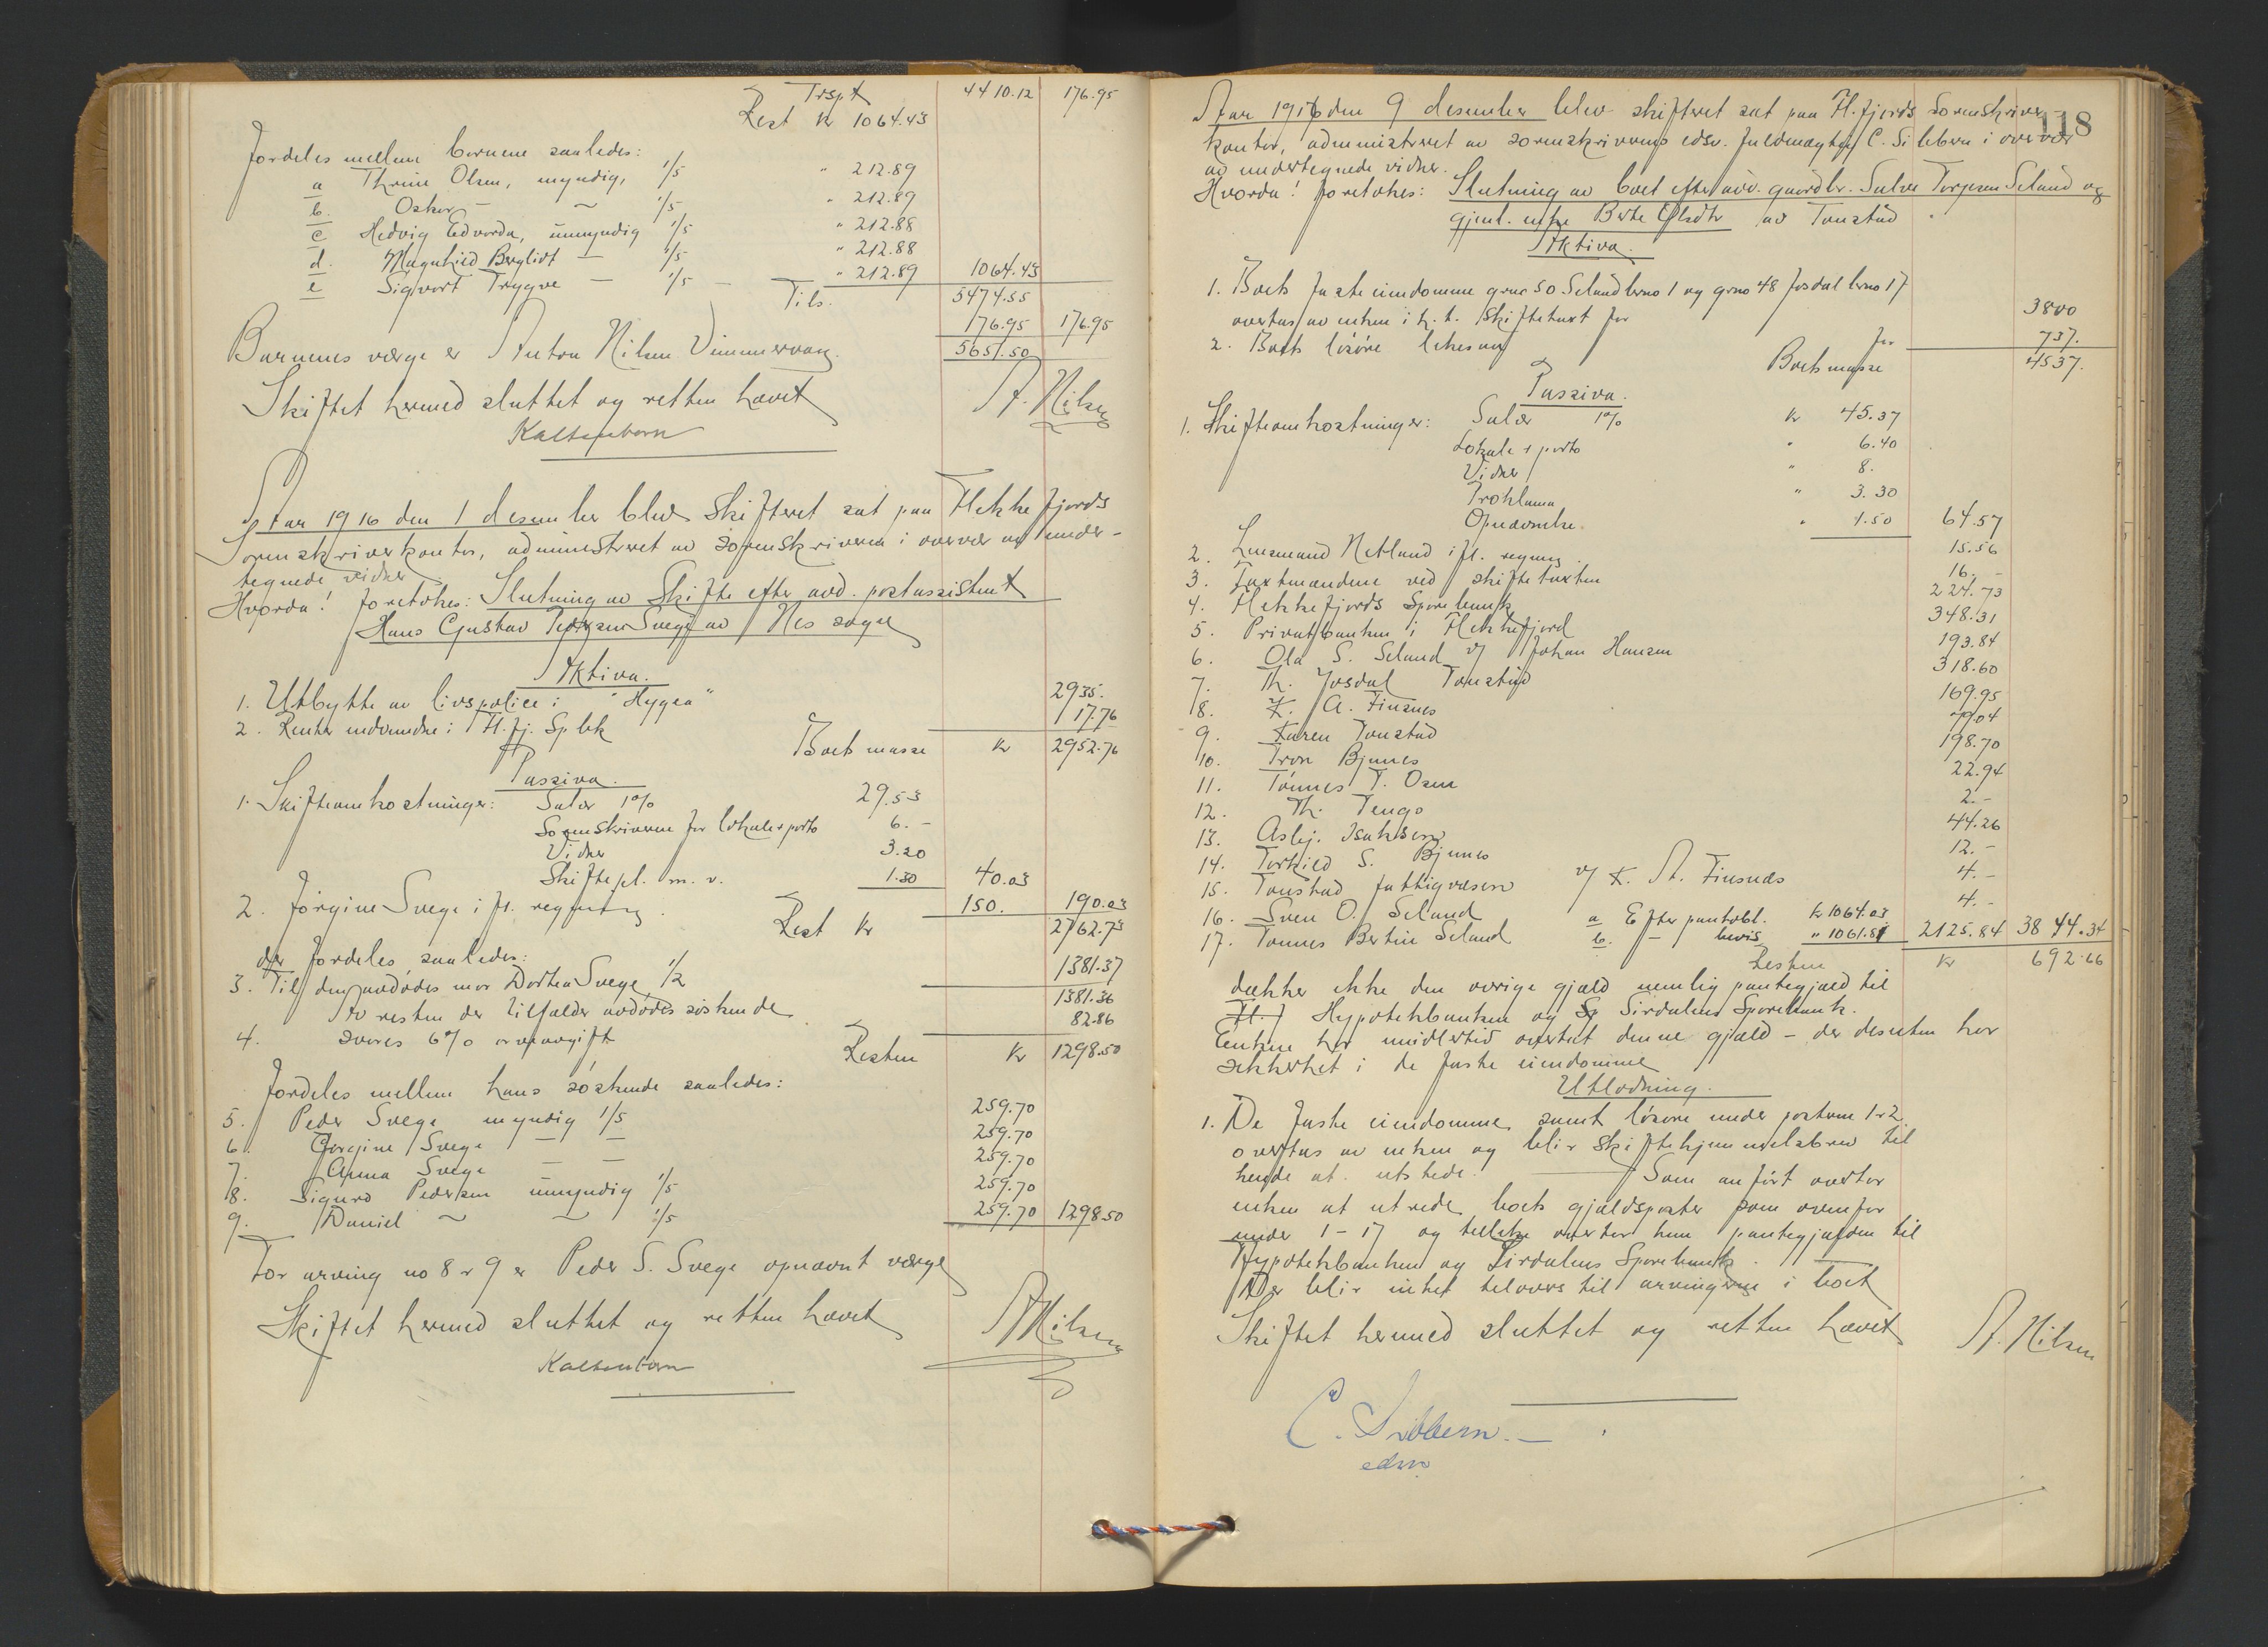 Trspt 4410.12 176.95
Rest kr 1064.43
Fordeles mellem barnene saaledes:
a Thrine Olsen, myndig, 1/5 " 212.89
b. Oskar — ~ 1/5 " 212.89
c Hedvig Edvarda, umyndig 1/5 " 212.88
d. Magnhild Bergliot — 1/5 " 212.88
e Sigvart Trygve — 1/5 — " 212.89 1064.43
Tils. 5474.55
176.95 176.95
5651.50
Barnenes værge er Anton Nilsen Vimmervaag.
Skiftet hermed sluttet og retten hævet
Kaltenborn
A. Nilsen
Aar 1916 den 1 desember blev skifteret sat paa Flekkefjords
Sorenskriverkontor, administreret av sorenskriveren i overvær av under-
tegnede vidner
Hvorda! foretokes: Slutning av Skifte efter avd. postassistent
Hans Gustav Pedersen Svege av Nes sogn
Aktiva.
1. Utbytte av livspolice i "Hygea" 2935.
2. Renter indvundne i Fl.fj. Sp.bk 17.76
Boets masse kr 2952.76
Passiva.
1. Skifteomkostninger: Salær 1% 29.53
Sorenskriveren for lokale + porto 6.-
Vidner 3.20
Skiftepl. m. v. 1.30 40.03
2. Jørgine Svege i fl. regning. 150. 190.03
Rest kr 2762.73
der fordeles saaledes:
3. Til den avdødes mor Dorthea Svege, 1/2 1381.37
1381.36
Av resten der tilfalder avdødes søskende
4. svares 6% arveavgift 82.86
Resten kr 1298.50
Fordeles mellem hans søskende saaledes:
5. Peder Svege myndig 1/5 259.70
6. Jørgine Svege — — 259.70
7. Anna Svege — — 259.70
8. Sigurd Pedersen umyndig 1/5 259.70
9. Daniel ~ ~ 1/5 259.70 1298.50
For arving no 8 + 9 er Peder S. Svege opnævnt værge
Skiftet hermed sluttet og retten hævet
Kaltenborn
A Nilsen
118
Aar 1916 den 9 desember blev skifteret sat paa Fl.fjords sorenskriver-
kontor, administreret av sorenskriverens edsv. fuldmægtig C. Sibbern i overvær
av undertegnede vidner.
Hvorda! foretokes: Slutning av boet efter avd. gaardbr. Salve Torjesen Seland og
gjenl. enke Berte Olsdtr av Tonstad
Aktiva.
1. Boets faste eiendomme gno 50 Seland bruno 1 og gno 48 Josdal bno 17
overtas av enken i h. t. skiftetaxt for 3800
2. Boets løsøre likesaa for 737.
Boets masse 4537.
Passiva.
1. Skifteomkostninger: Salær 1% kr 45.37
Lokale + porto " 6.40
Vidner " 8.
Proklama " 3.30
Opnævnelse " 1.50 64.57
2. Lensmand Netland i fl. regning. 15.56
3. Taxtmændene ved skiftetaxten 16. -
4. Flekkefjords Sparebank 224.73
5. Privatbanken i Flekkefjord 348.31
6. Ola S. Seland v/ Johan Hansen 193.84
7. Th. Josdal Tonstad 318.60
8. K. A. Finsnes 169.95
9. Karen Tonstad
10. Tron Bjunes 198.70
11. Tønnes T. Osen 22.94
12. Th. Tengo 2.-
13. Aslej. Isaksen 44.26
14. Torkild S. Bjunes 12.-
15. Tonstad fattigvæsen v/ K. A. Finsnæs 4.-
16. Sven O. Seland 4.-
17. Tønnes Bertin Seland a Efter pantobl. kr 1064.03
b. — bevis " 1061.81 2125.84 3844.34
Resten kr 692.66
dækker ikke den øvrige gjæld nemlig pantegjæld til
Fl.f Hypotekbanken og Sp Sirdalens Sparebank.
Enken har imidlertid overtat denne gjæld – der desuten har
sikkerhet i de faste eiendomme
Utlodning.
1. De faste eiendomme samt løsøre under postene 1+2
overtas av enken og blir skiftehjemmelsbrev til
hende at utstede. Som anført overtar
enken at utrede boets gjældsposter som ovenfor
under 1–17 og tillike overtar hun pantegjælden til
Hypotekbanken og Sirdalens Sparebank.
Der blir intet tilovers til arvingerne i boet
Skiftet hermed sluttet og retten hævet
A. Nilsen
C. Sibbern. —
edsv.